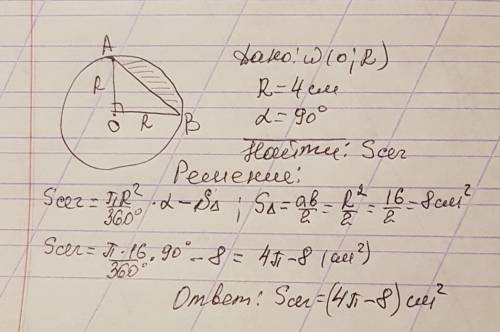 A
R
O
R
B
Дано: ω(O; R)
R = 4 см
α = 90°
Найти: Sсег
Решение:
Sсег = πR²/360° · α – S△ ; S△ = ab/2 = R²/2 = 16/2 = 8см²
Sсег = π·16/360° · 90° – 8 = 4π – 8 (см²)
Ответ: Sсег = (4π – 8) см²